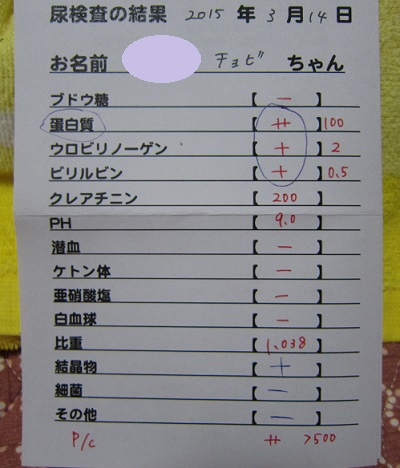 尿検査の結果 2015 年 3 月 14 日
お名前 チョビ ちゃん
ブドウ糖 【 − 】
蛋白質 【 ++ 】100
ウロビリノーゲン 【 + 】2
ビリルビン 【 + 】0.5
クレアチニン 【 200 】
PH 【 9.0 】
潜血 【 − 】
ケトン体 【 − 】
亜硝酸塩 【 − 】
白血球 【 − 】
比重 【 1.038 】
結晶物 【 + 】
細菌 【 − 】
その他 【 − 】
P/C ++ >500